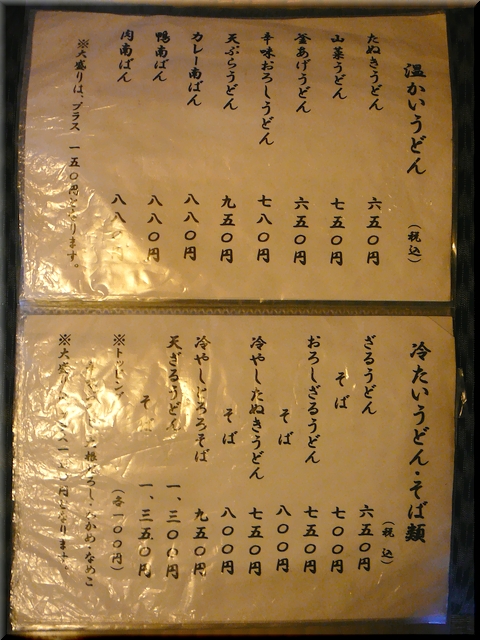 温かいうどん
(税込)
たぬきうどん 六五〇円
山菜うどん 七五〇円
釜あげうどん 六五〇円
辛味おろしうどん 七八〇円
天ぷらうどん 九五〇円
カレー南ばん 八八〇円
鴨南ばん 八八〇円
肉南ばん 八八〇円
※大盛りは、プラス 一五〇円となります。
冷たいうどん・そば類
(税込)
ざるうどん 六五〇円
そば 七〇〇円
おろしざるうどん 七五〇円
そば 八〇〇円
冷やしたぬきうどん 七五〇円
そば 八〇〇円
冷やしとろろそば 九五〇円
天ざるうどん 一、三〇〇円
そば 一、三五〇円
※トッピング (各一〇〇円)
おろし・わかめ・なめこ
※大盛り 円となります。